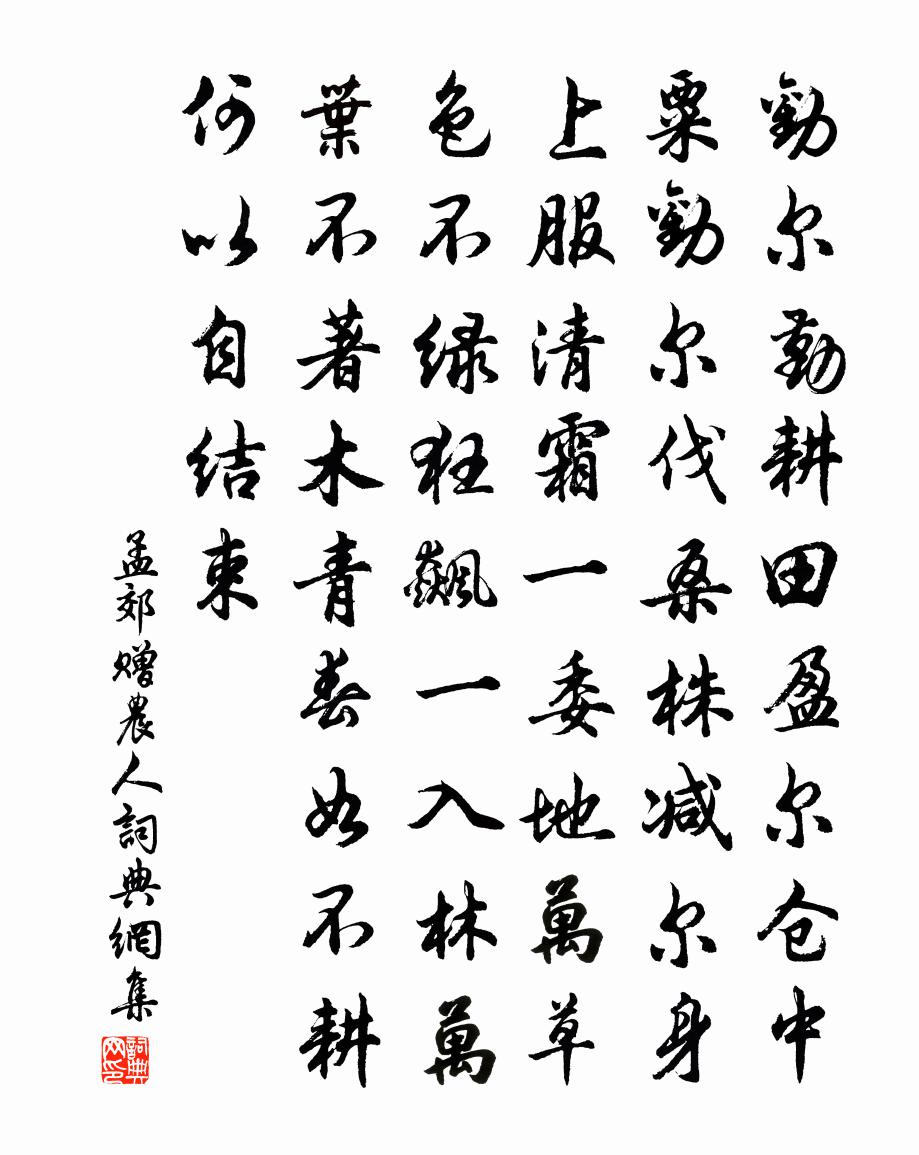 勸尔勤耕田盈尔仓中
粟勸尔伐桑株减尔身
上服清霜一委地萬草
色不绿狂飙一入林萬
葉不著木青春如不耕
何以自结束
孟郊赠農人詞典網集
詞典网印